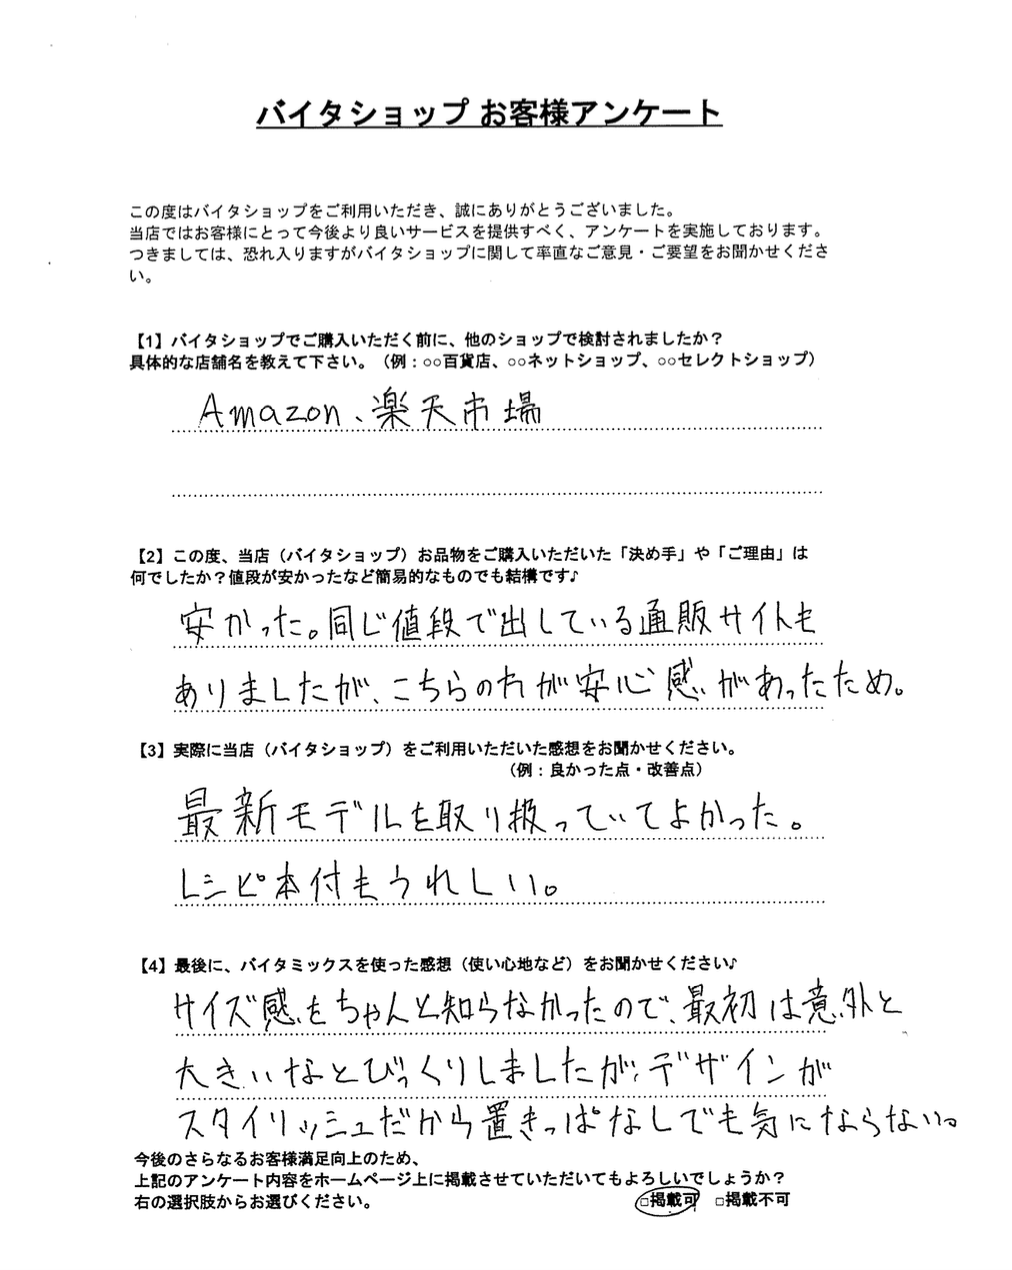 バイタショップ お客様アンケート
この度はバイタショップをご利用いただき、誠にありがとうございました。
当店ではお客様にとって今後より良いサービスを提供すべく、アンケートを実施しております。
つきましては、恐れ入りますがバイタショップに関して率直なご意見・ご要望をお聞かせくださ
い。
【1】バイタショップでご購入いただく前に、他のショップで検討されましたか？
具体的な店舗名を教えて下さい。（例：○○百貨店、○○ネットショップ、○○セレクトショップ）
Amazon、楽天市場
【2】この度、当店（バイタショップ）お品物をご購入いただいた「決め手」や「ご理由」は
何でしたか？値段が安かったなど簡易的なものでも結構です♪
安かった。同じ値段で出している通販サイトも
ありましたが、こちらのれが安心感があったため。
【3】実際に当店（バイタショップ）をご利用いただいた感想をお聞かせください。
（例：良かった点・改善点）
最新モデルを取り扱っていてよかった。
レシピ本付もうれしい。
【4】最後に、バイタミックスを使った感想（使い心地など）をお聞かせください♪
サイズ感をちゃんと知らなかったので、最初は意外と
大きいなとびっくりしましたが、デザインが
スタイリッシュだから置きっぱなしでも気にならない。
今後のさらなるお客様満足向上のため、
上記のアンケート内容をホームページ上に掲載させていただいてもよろしいでしょうか？
右の選択肢からお選びください。 □掲載可 □掲載不可